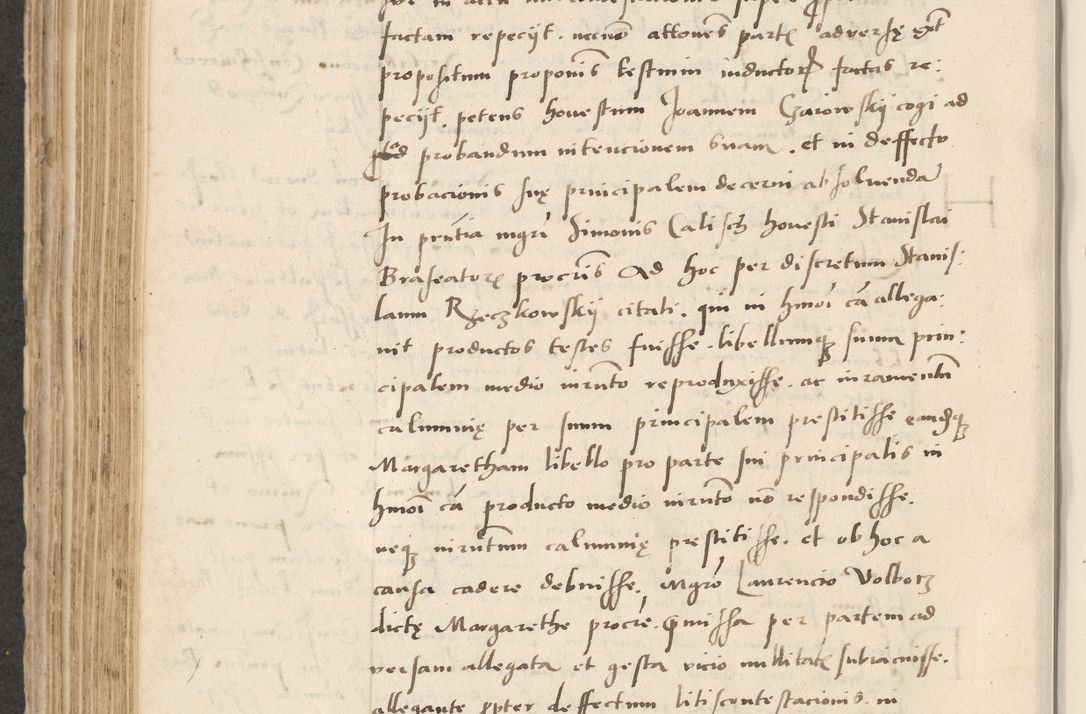 factam repecijt. necno attones part adversę ext
propositum proponis testium inductor factas re:
pecijt. petens honestum Joannem Czarowskij cogi ad
probandum intencionem suam. et in deffectu
probacionis suę principalem decerni absoluenda
In pntia mgri Simonis Calisch honesti Stanislai
Braseator procris Ad hoc per discretum Stanis:
laum Rzeczkowskij citati. qui in hmoi ca allega:
uit productos testes fuisse. libellumq suum prin:
cipalem medio iurnto reproduxisse. ac iuramentu
calumnię per suum principalem prestitisse eandq
Margaretham libello pro parte sui principalis in
hmoi ca producto medio iurnto no respondisse.
neq iurntum calumnię prestitisse. et ob hoc a
causa cadere debuisse. Mgro Laurencio Volborz
dictę Margarethe procre pmissa per partem ad
versam allegata et gesta vicio nullitat subiacuisse.
allegante ppter deffectum litiscontestacionis. in